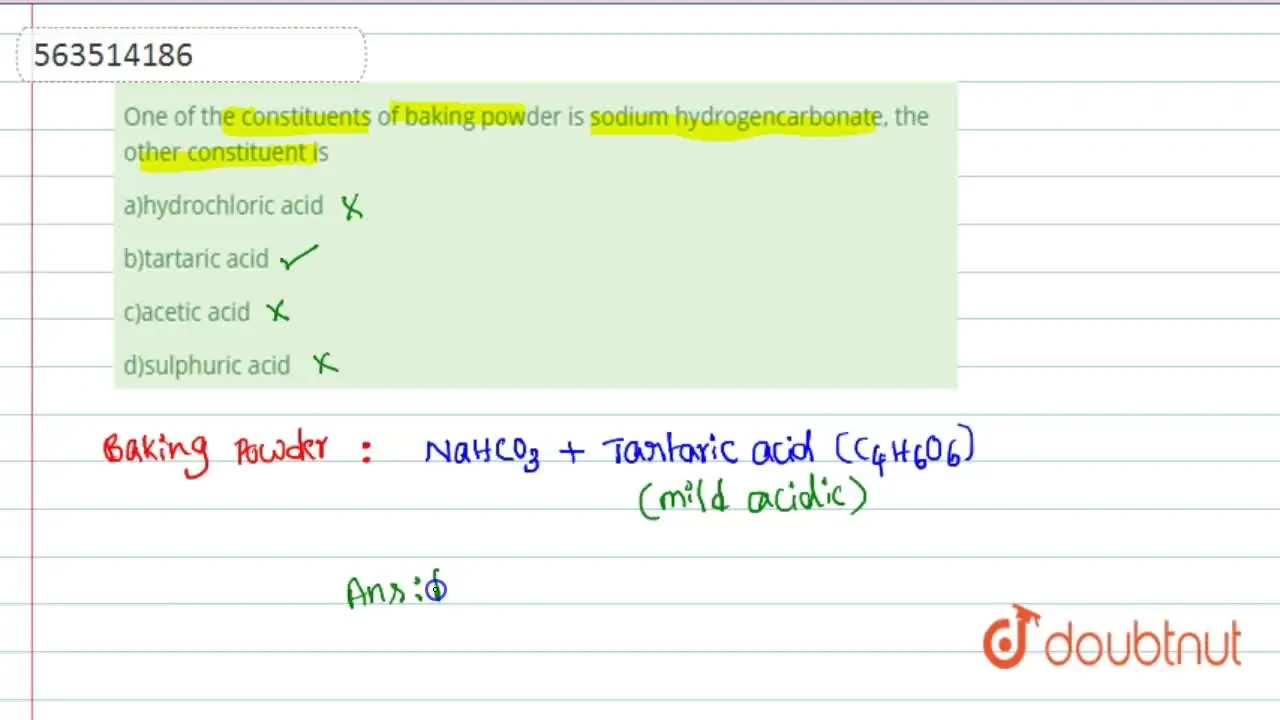 563514186
One of the constituents of baking powder is sodium hydrogencarbonate, the
other constituent is
a)hydrochloric acid
b)tartaric acid
c)acetic acid
d)sulphuric acid
Baking Powder : NaHCO3 + Tartaric acid (C4H6O6)
(mild acidic)
Ans:
doubtnut